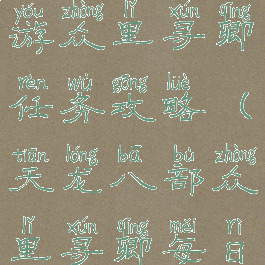 yóu zhòng lǐ xún qīng
游众里寻卿
rèn wù gōng lüè
任务攻略（
tiān lóng bā bù zhòng
天龙八部众
lǐ xún qīng měi rì
里寻卿每日